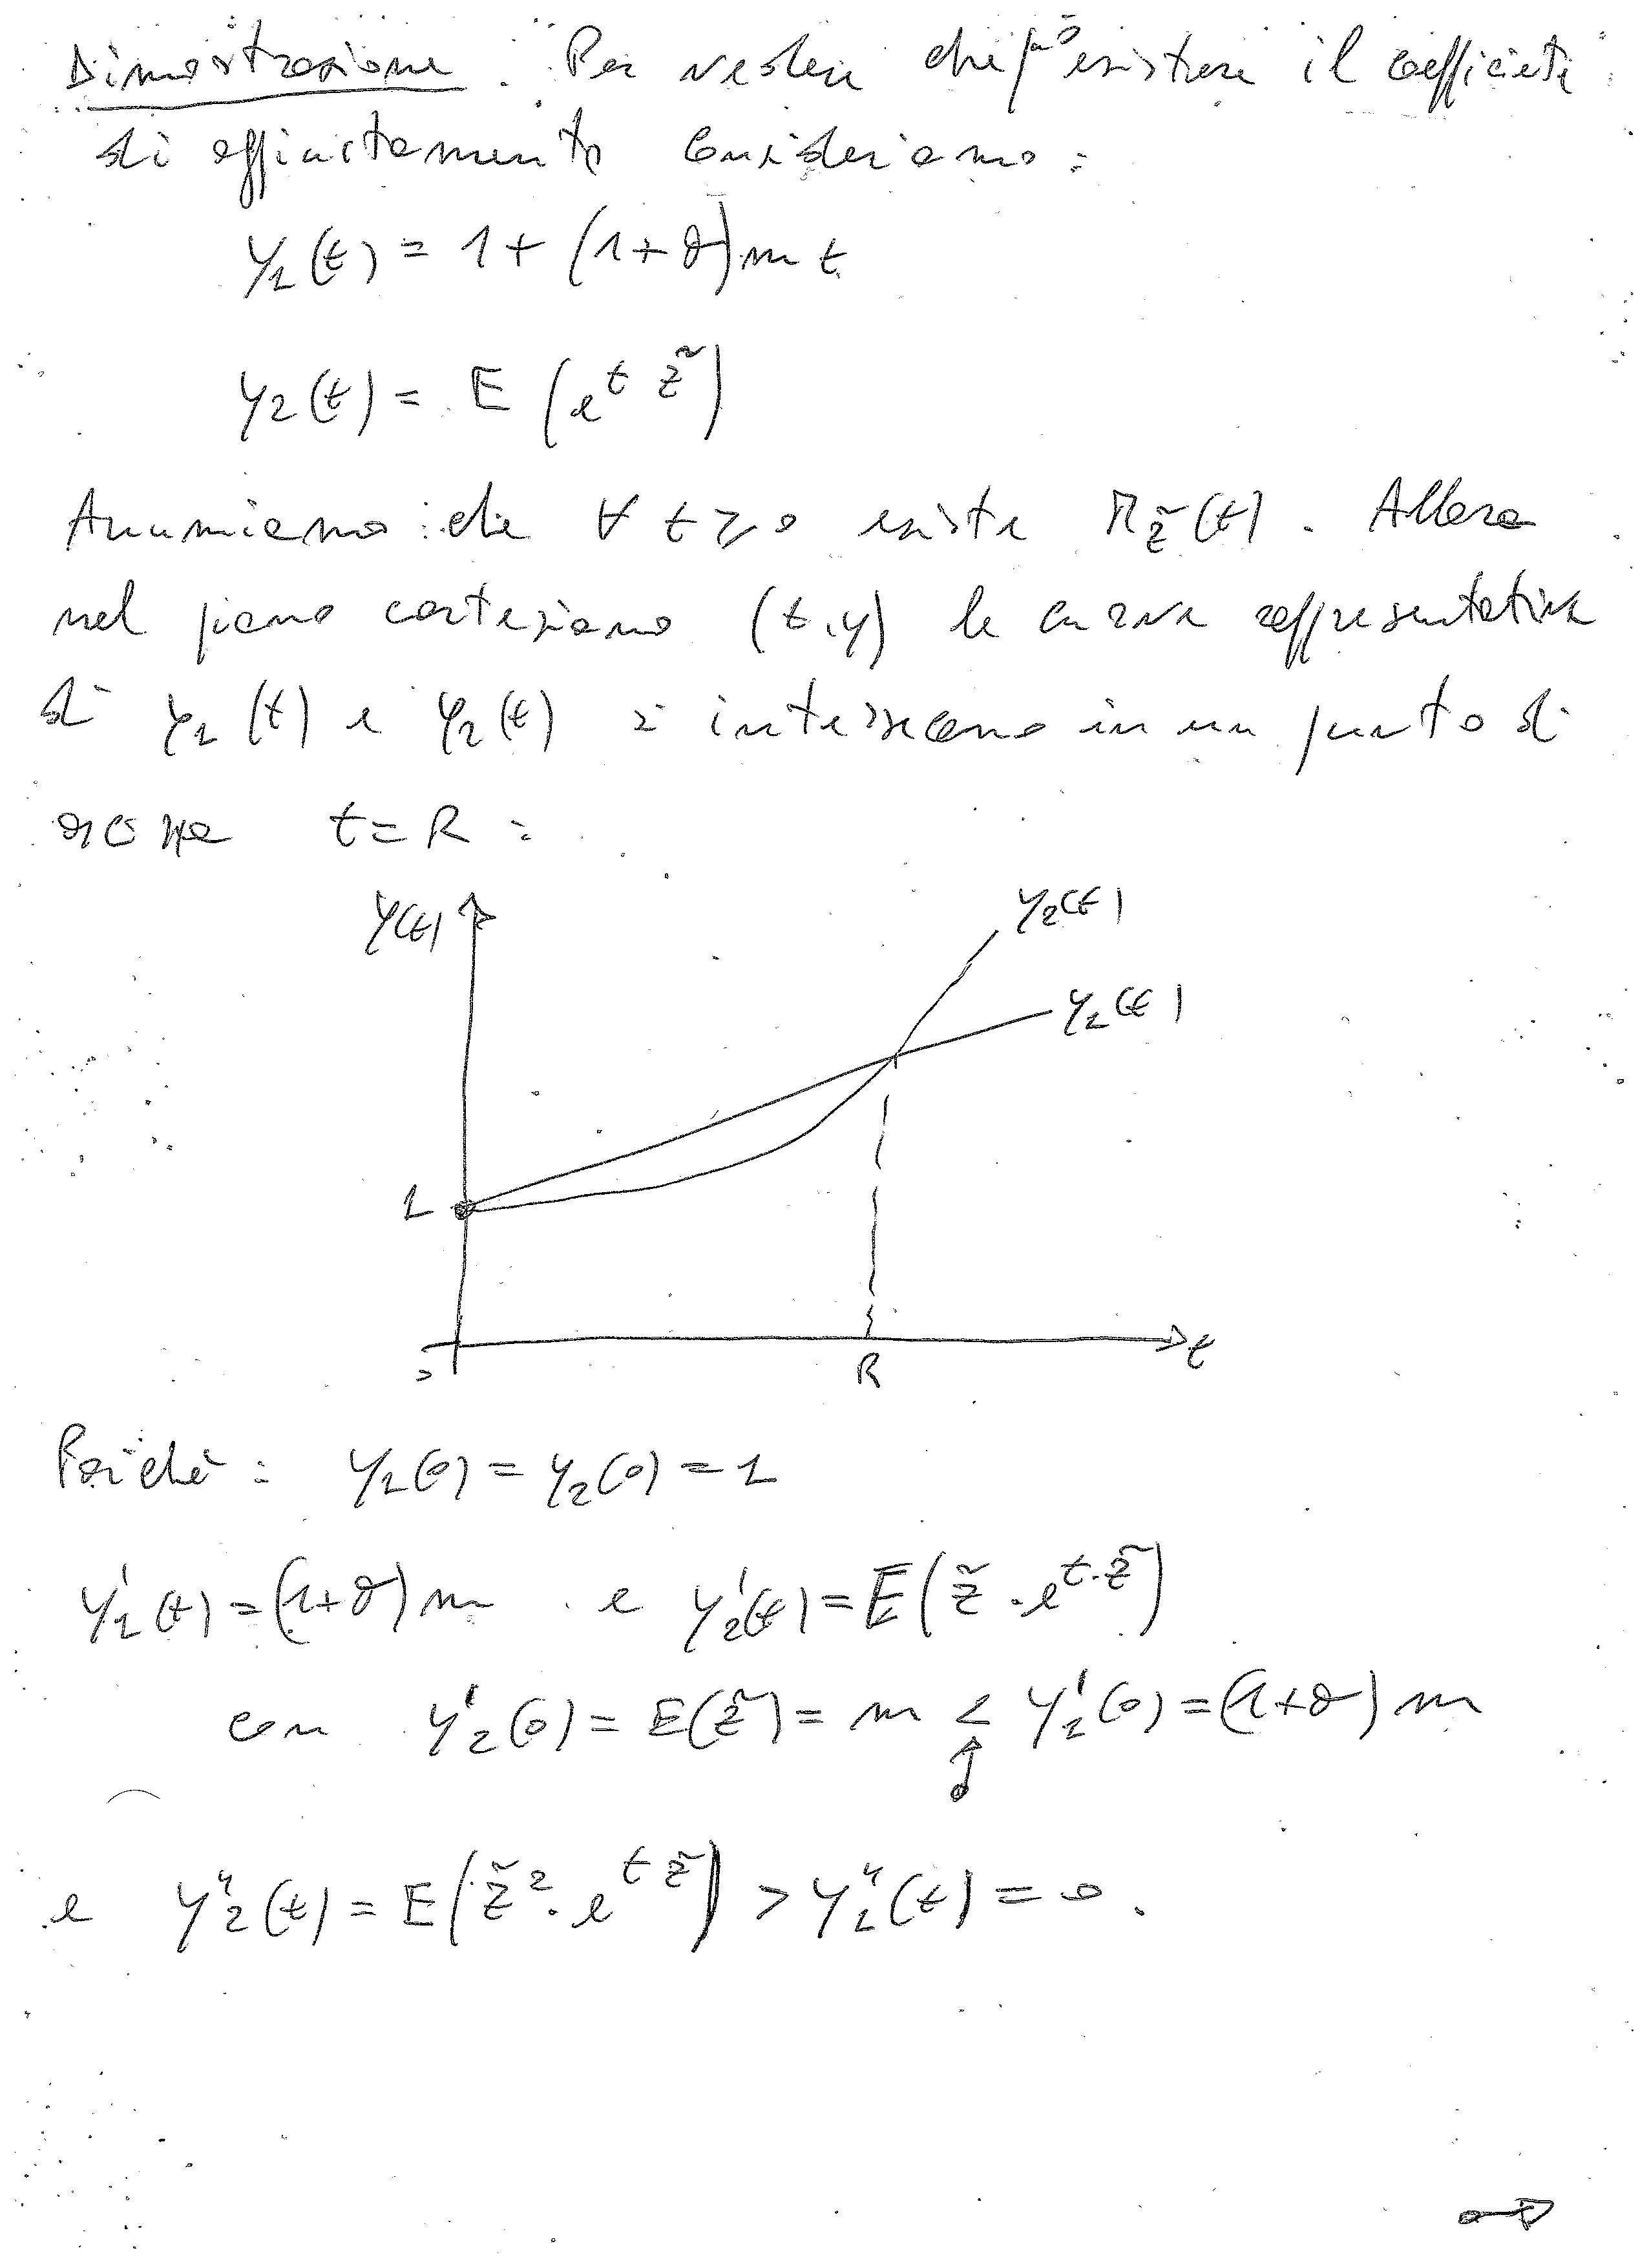 Dimostrazione. Per vedere che può esistere il coefficiente
di aggiustamento consideriamo:
y₁(t) = 1 + (1+θ) m t
y₂(t) = E (e^{t z̃})
Assumiamo che ∀ t ≥ 0 esiste M_z̃(t). Allora
nel piano cartesiano (t,y) le curve rappresentative
di y₁(t) e y₂(t) si intersecano in un punto di
ascissa t = R:
y(t)
y₂(t)
y₁(t)
1
0
R
t
Poichè: y₁(0) = y₂(0) = 1
y₁'(t) = (1+θ) m e y₂'(t) = E(z̃ · e^{t·z̃})
con y₂'(0) = E(z̃) = m < y₁'(0) = (1+θ) m
e y₂''(t) = E(z̃² · e^{t z̃}) > y₁''(t) = 0.